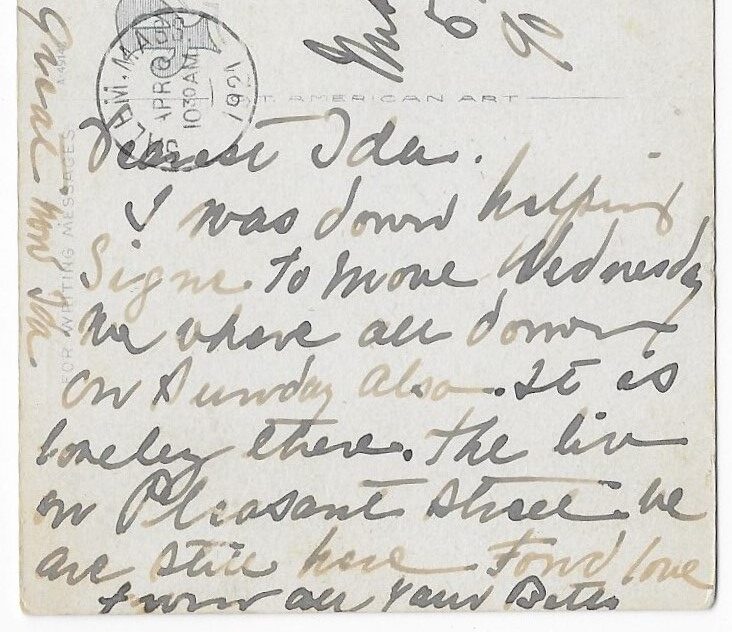 Dearest Ida.
I was down helping
Signe. to move Wednesday
we where all down
on Sunday also. It is
loveley there. The liv
on Pleasant Street we
are still here Fond love
from all your
SALEM. MASS
APR 8
10 30 AM
1921
ST. AMERICAN ART
FOR WRITING MESSAGES